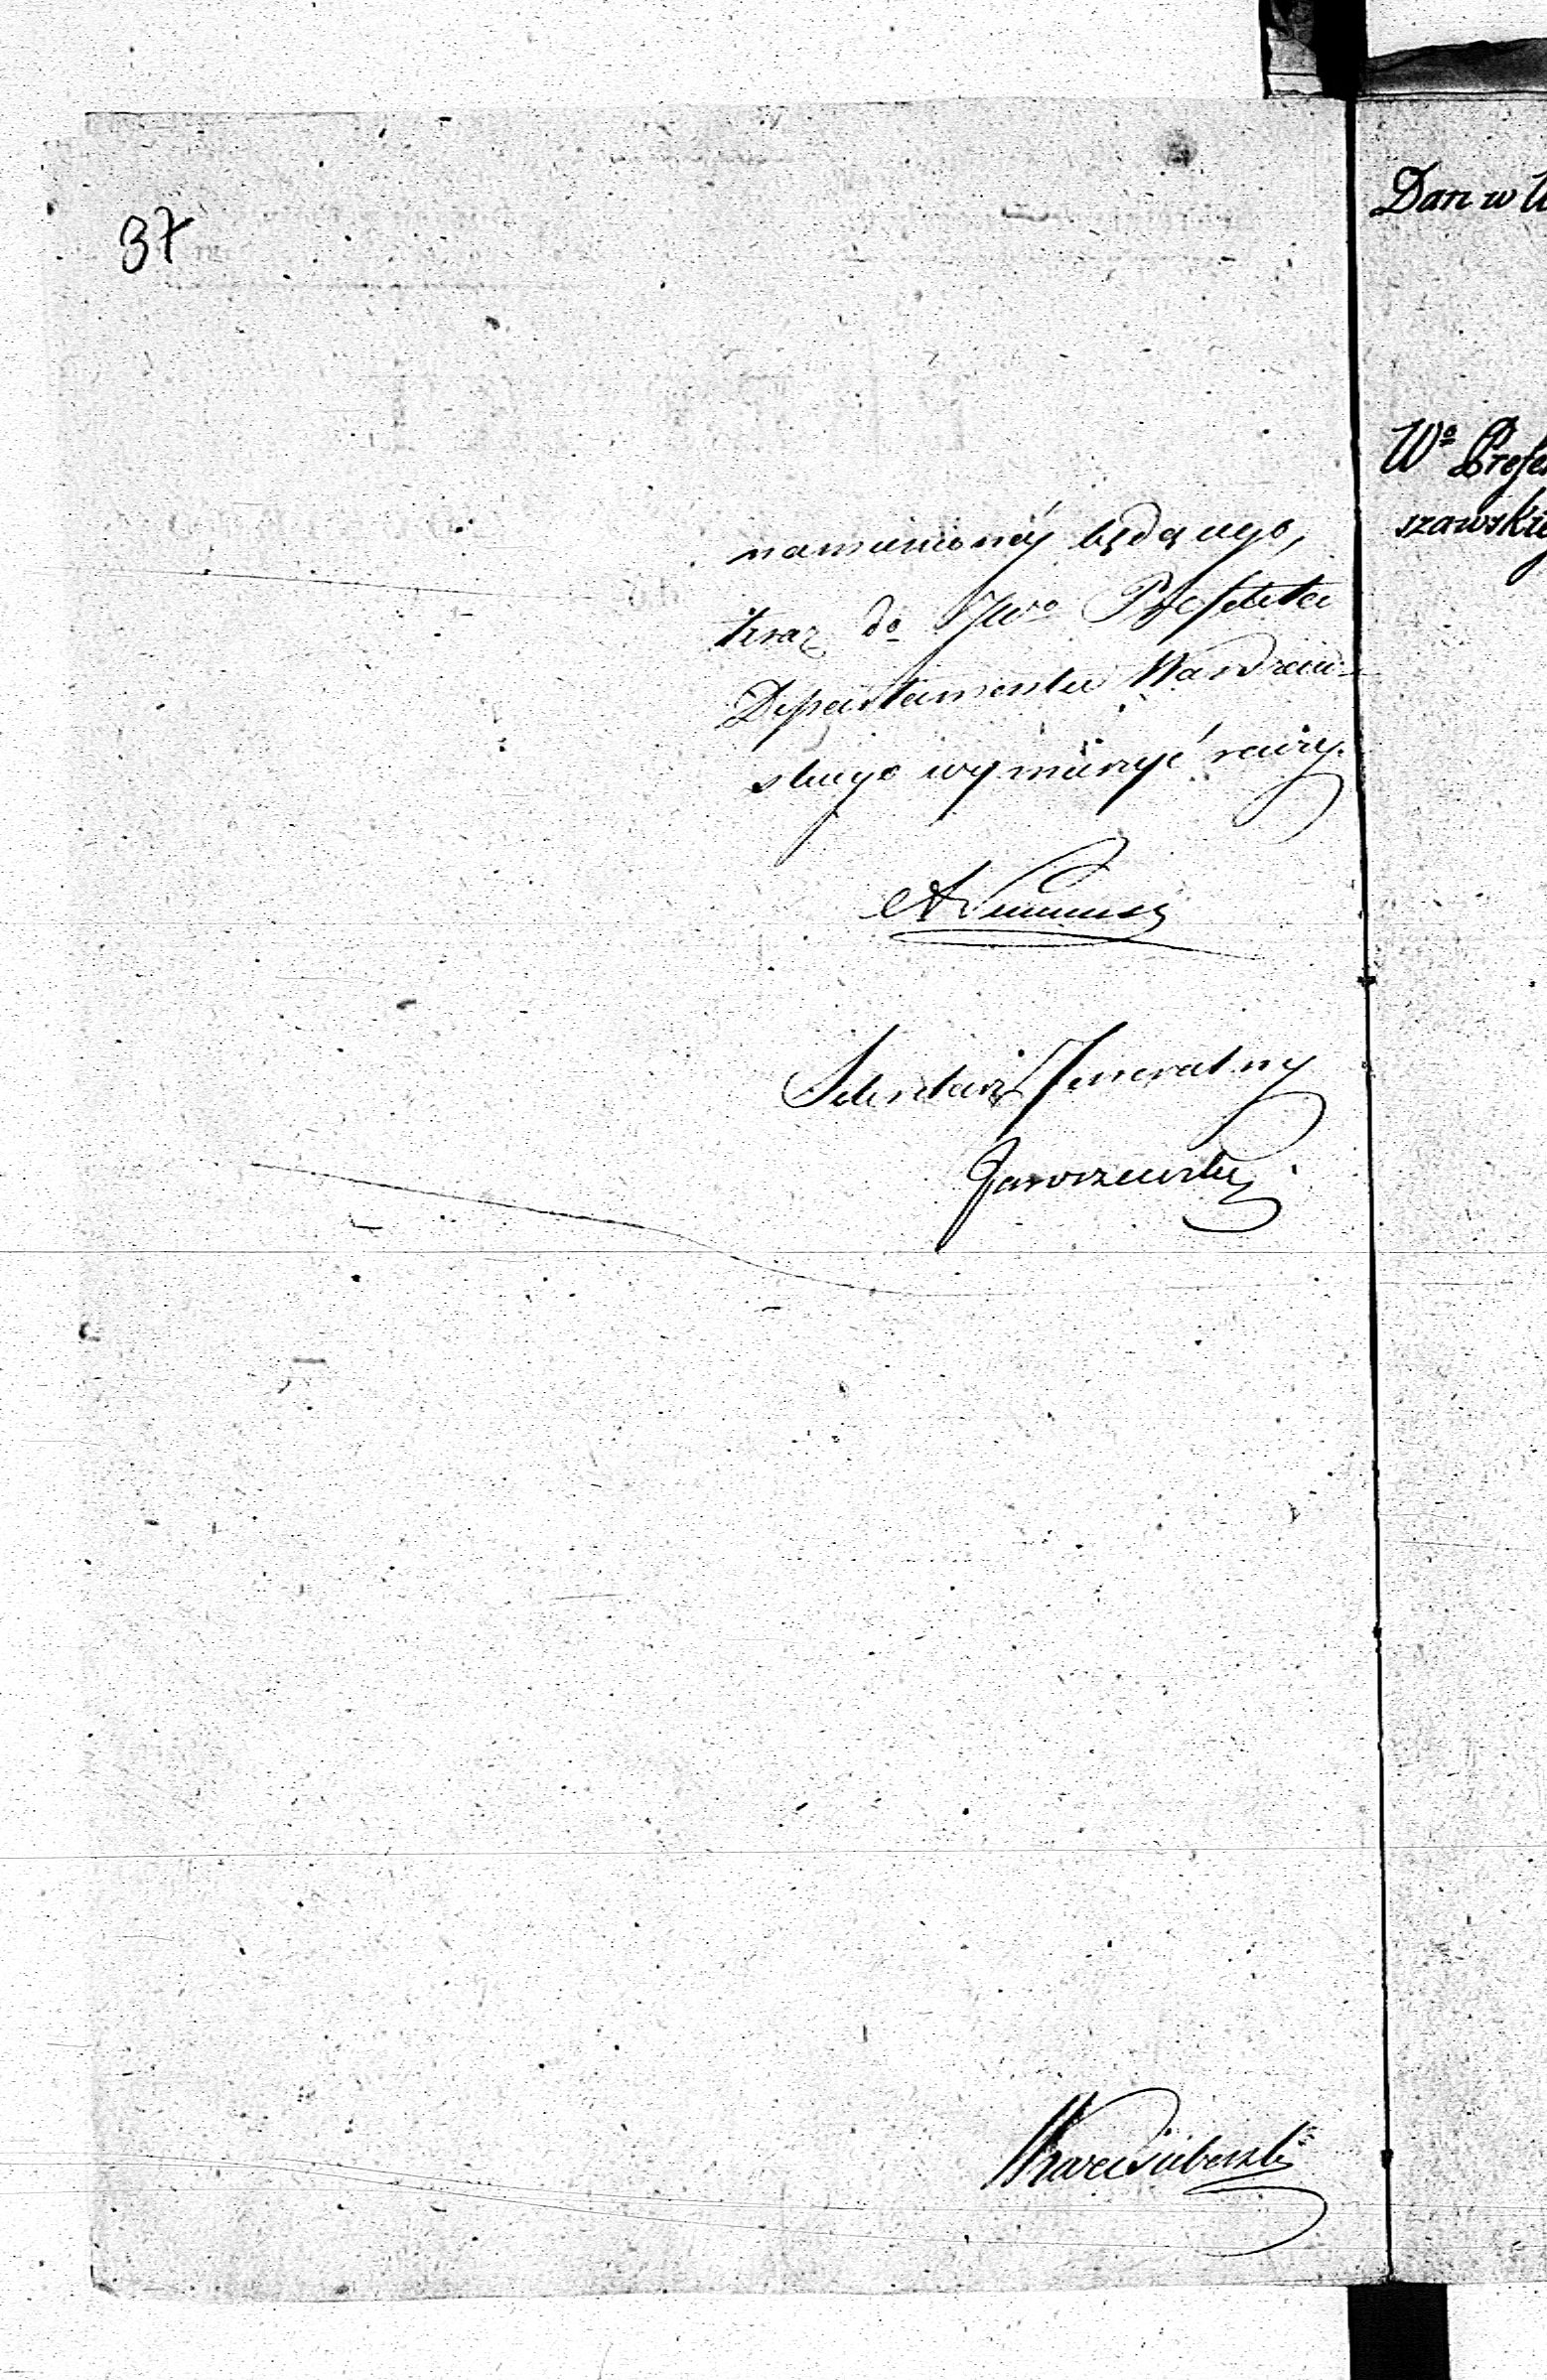 37
namienionéj będącego,
teraz do JWo Prefekta
Departamentu Warszaw=
skiego wymierzyć raczy.
Sekretarz Jeneralny
Jaroszewski
Dan w W
Wo Prefe
szawskie